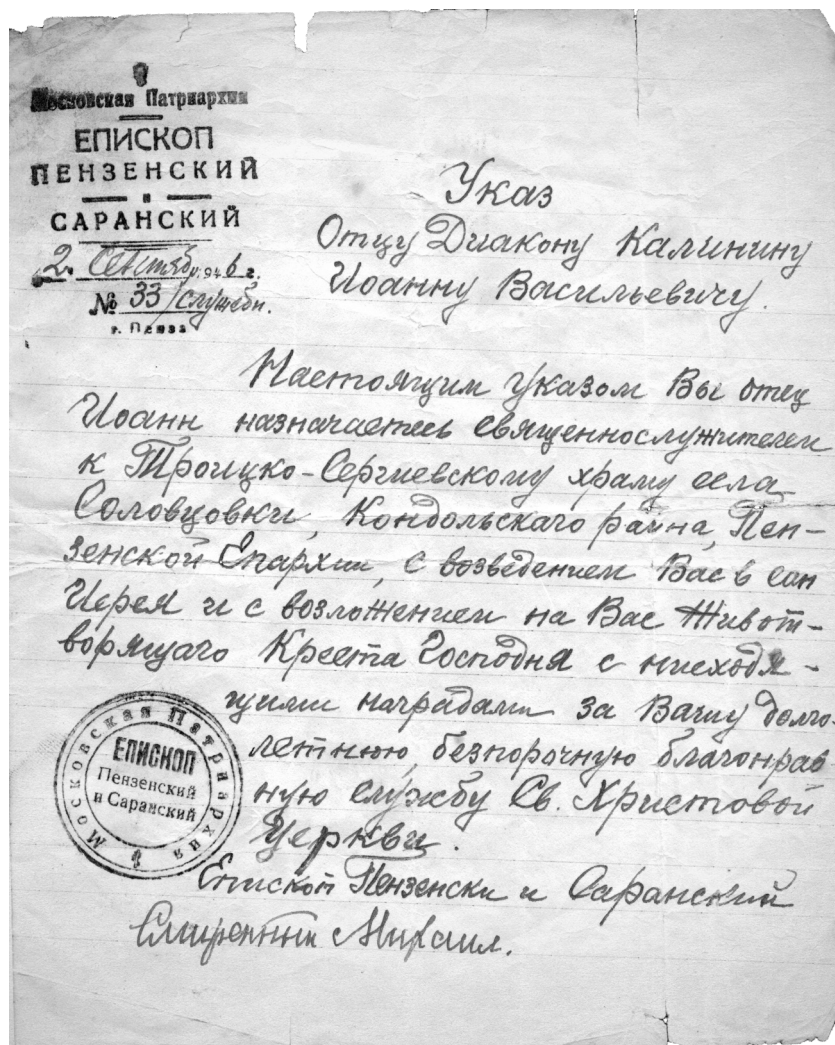 Московская Патриархия
ЕПИСКОП
ПЕНЗЕНСКИЙ
и
САРАНСКИЙ
2. Сентябр 1946 г.
№ 33/служебн.
г. Пенза
Указ
Отцу Диакону Калинину
Иоанну Васильевичу.
Настоящим указом Вы отец
Иоанн назначаетесь священнослужителем
к Троицко-Сергиевскому храму села
Соловцовки, Кондольскаго район, Пен-
зенской Епархии, с возведением Вас в сан
Иерея и с возложением на Вас Живот-
ворящаго Креста Господня с нисходя-
щими наградами за Вашу долго-
летнюю, безпорочную благонрав
ную службу Св. Христовой
Церкви.
Епископ Пензенски и Саранский
Смиренный Михаил.
Московская Патриархия
ЕПИСКОП
Пензенский
и Саранский